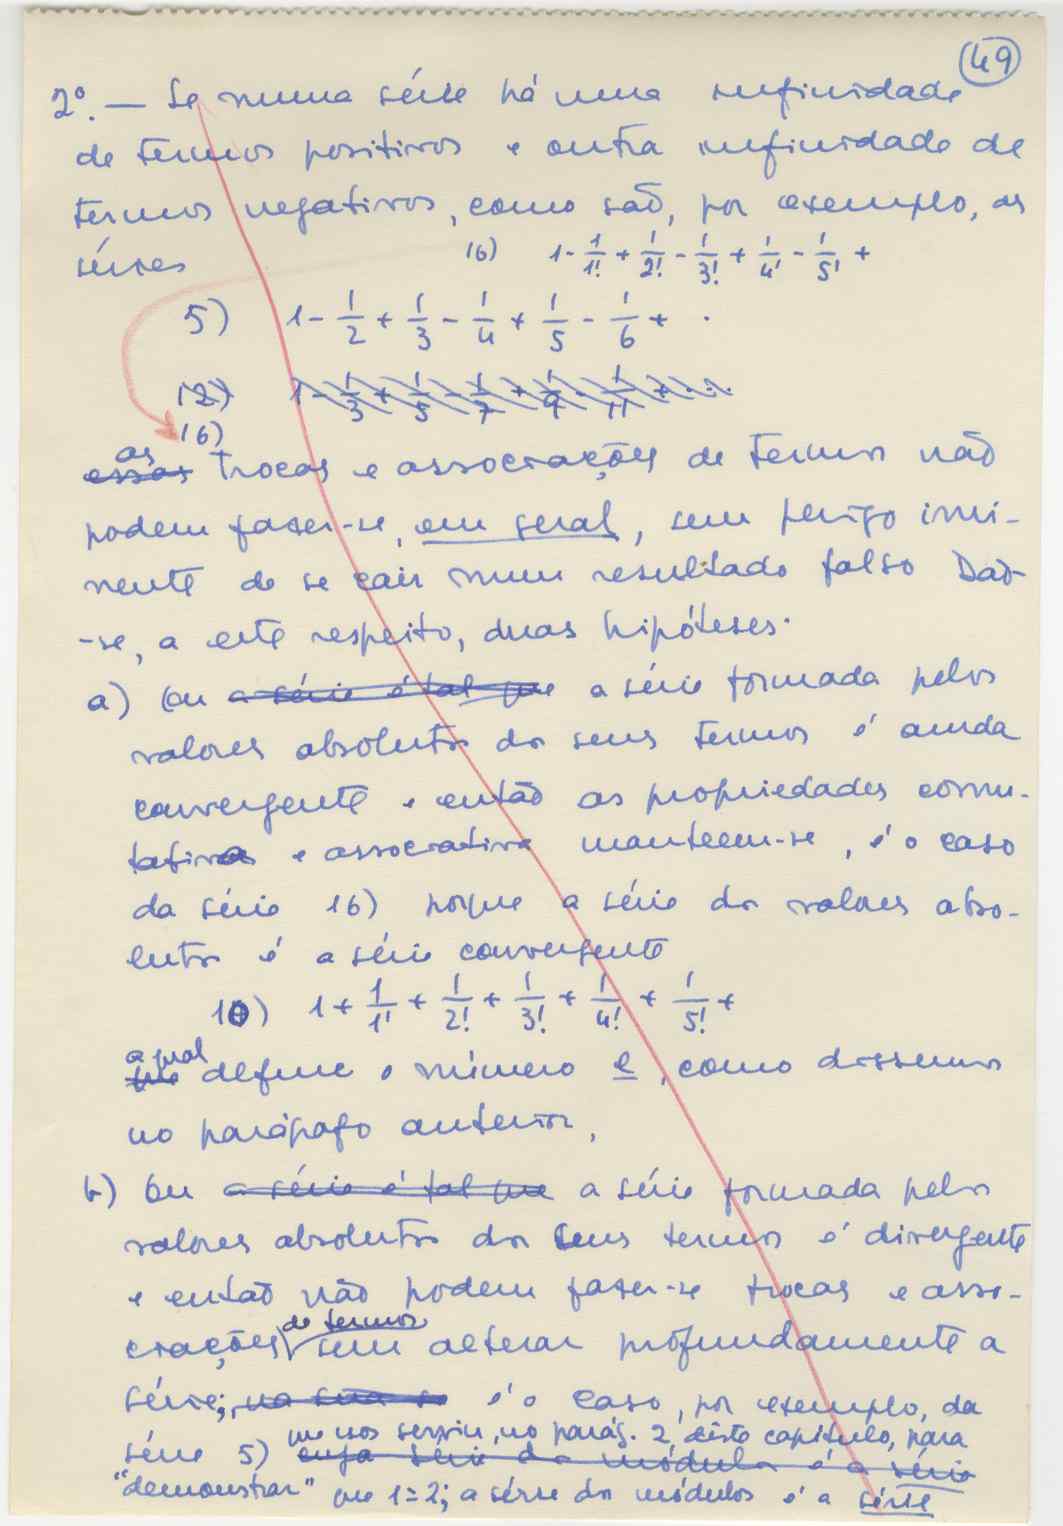 49
2º. — Se numa série há uma infinidade
de termos positivos e outra infinidade de
termos negativos, como são, por exemplo, as
séries
16) 1 - 1/1! + 1/2! - 1/3! + 1/4! - 1/5! +
5) 1 - 1/2 + 1/3 - 1/4 + 1/5 - 1/6 + .
12) 1 - 1/3 + 1/5 - 1/7 + 1/9 - 1/11 + ...
16)
as
essas trocas e associações de termos não
podem fazer-se, em geral, sem perigo imi-
nente de se cair num resultado falso Dão-
-se, a este respeito, duas hipóteses.
a) Ou a série é tal que a série formada pelos
valores absolutos dos seus termos é ainda
convergente e então as propriedades comu-
tativa e associativa manteem-se, é o caso
da série 16) porque a série dos valores abso-
lutos é a série convergente
10) 1 + 1/1! + 1/2! + 1/3! + 1/4! + 1/5! +
a qual
que define o número e, como dissemos
no parágrafo anterior,
b) Ou a série é tal que a série formada pelos
valores absolutos dos seus termos é divergente
e então não podem fazer-se trocas e asso-
de termos
ciações sem alterar profundamente a
série; na sua so é o caso, por exemplo, da
que nos serviu, no parág. 2 deste capítulo, para
série 5) cuja série dos módulos é a série
"demonstrar" que 1=2; a série dos módulos é a série